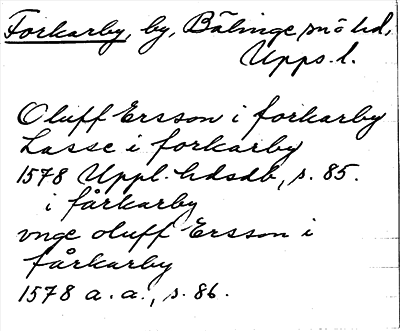 Forkarby, by, Bälinge snö hd,
Upps. l.
Oluff Ersson i forkarby
Lasse i forkarby
1578 Uppl. hdsdb, s. 85.
i fårkarby
vnge oluff Ersson i
fårkarby
1578 a. a., s. 86.